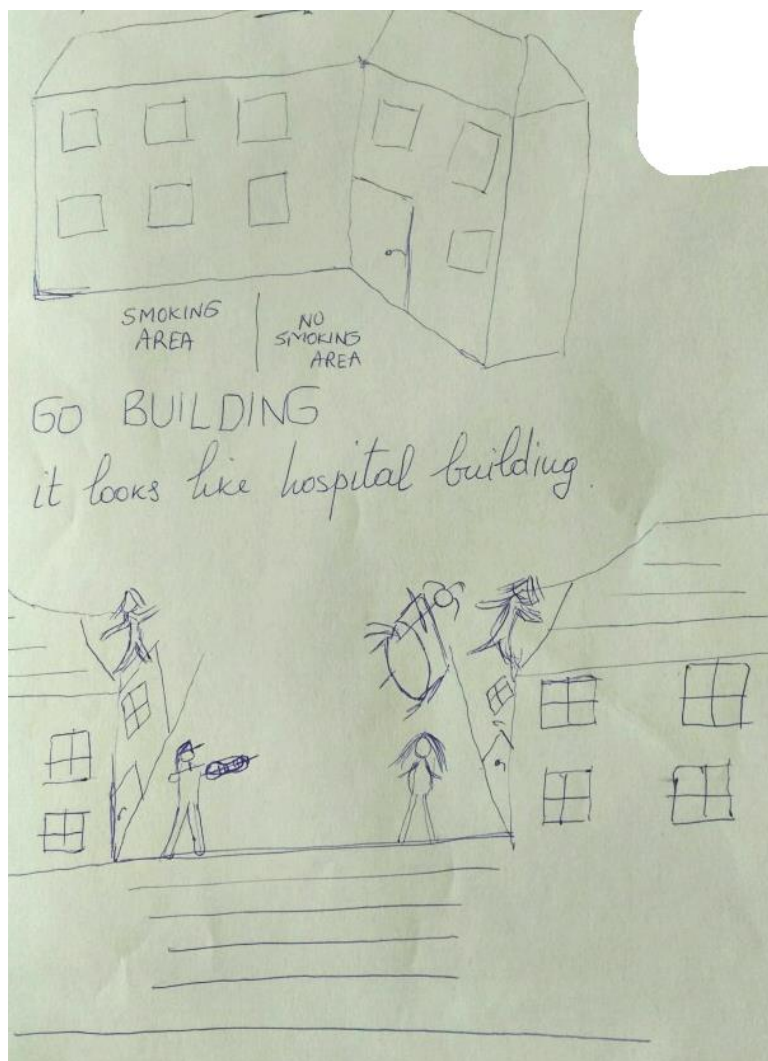 SMOKING
AREA
NO
SMOKING
AREA
GO BUILDING
it looks like hospital building.